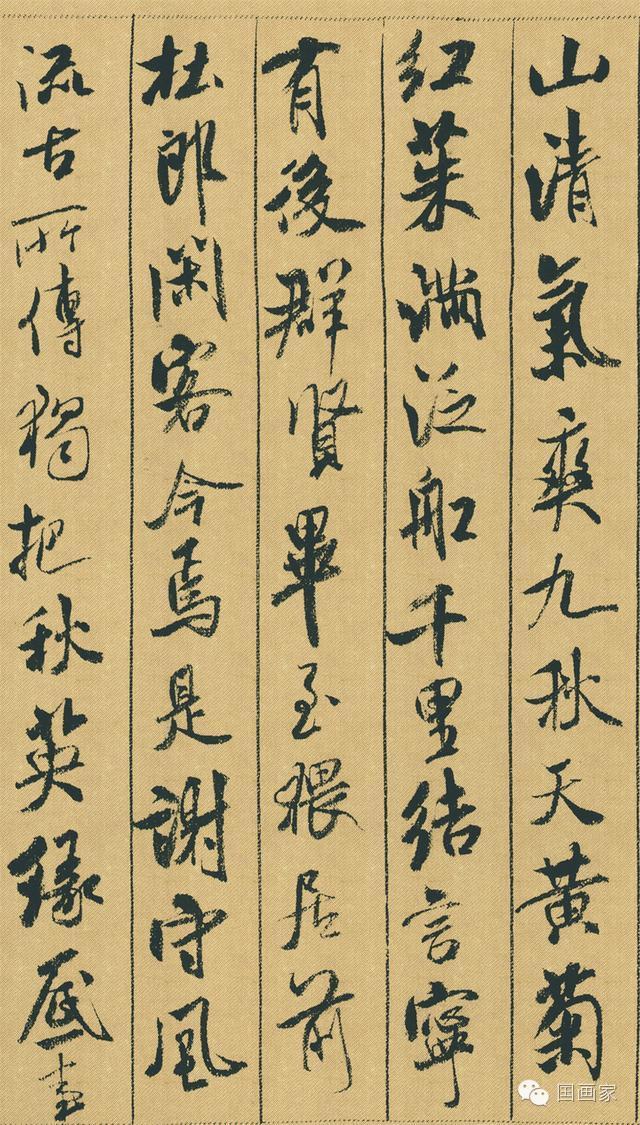 山清氣爽九秋天黃菊
紅茱滿泛舡千里結言寧
有後群賢畢至猥居前
杜郎閑客今焉是謝守風
流古所傳獨把秋英緣底事
国画家